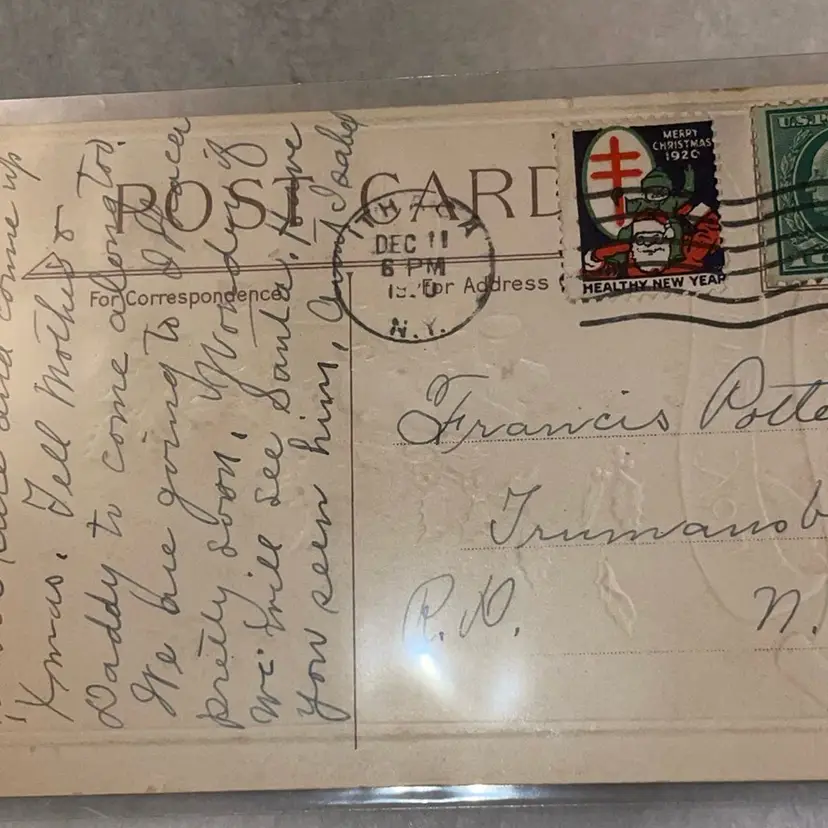 POST CARD
For Correspondence
For Address
MERRY
CHRISTMAS
1920
HEALTHY NEW YEAR
U.S.P
ITHACA
DEC 11
6 PM
1920
N.Y.
and come up
Xmas. Tell Mother &
Daddy to come along too.
We are going to Ithaca
pretty soon. Wonder if
we'll see Santa. Have
you seen him, Aunt Isabel
Francis Potte
Trumansb
R.D. N.